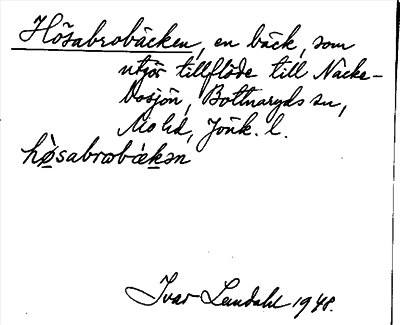 Hösabrobäcken, en bäck, som
utgör tillflöde till Nacke-
bosjön, Bottnaryds sn,
Mo hd, Jönk. l.
hø̀sabrobæ̀kən
Ivar Lundahl 1948.